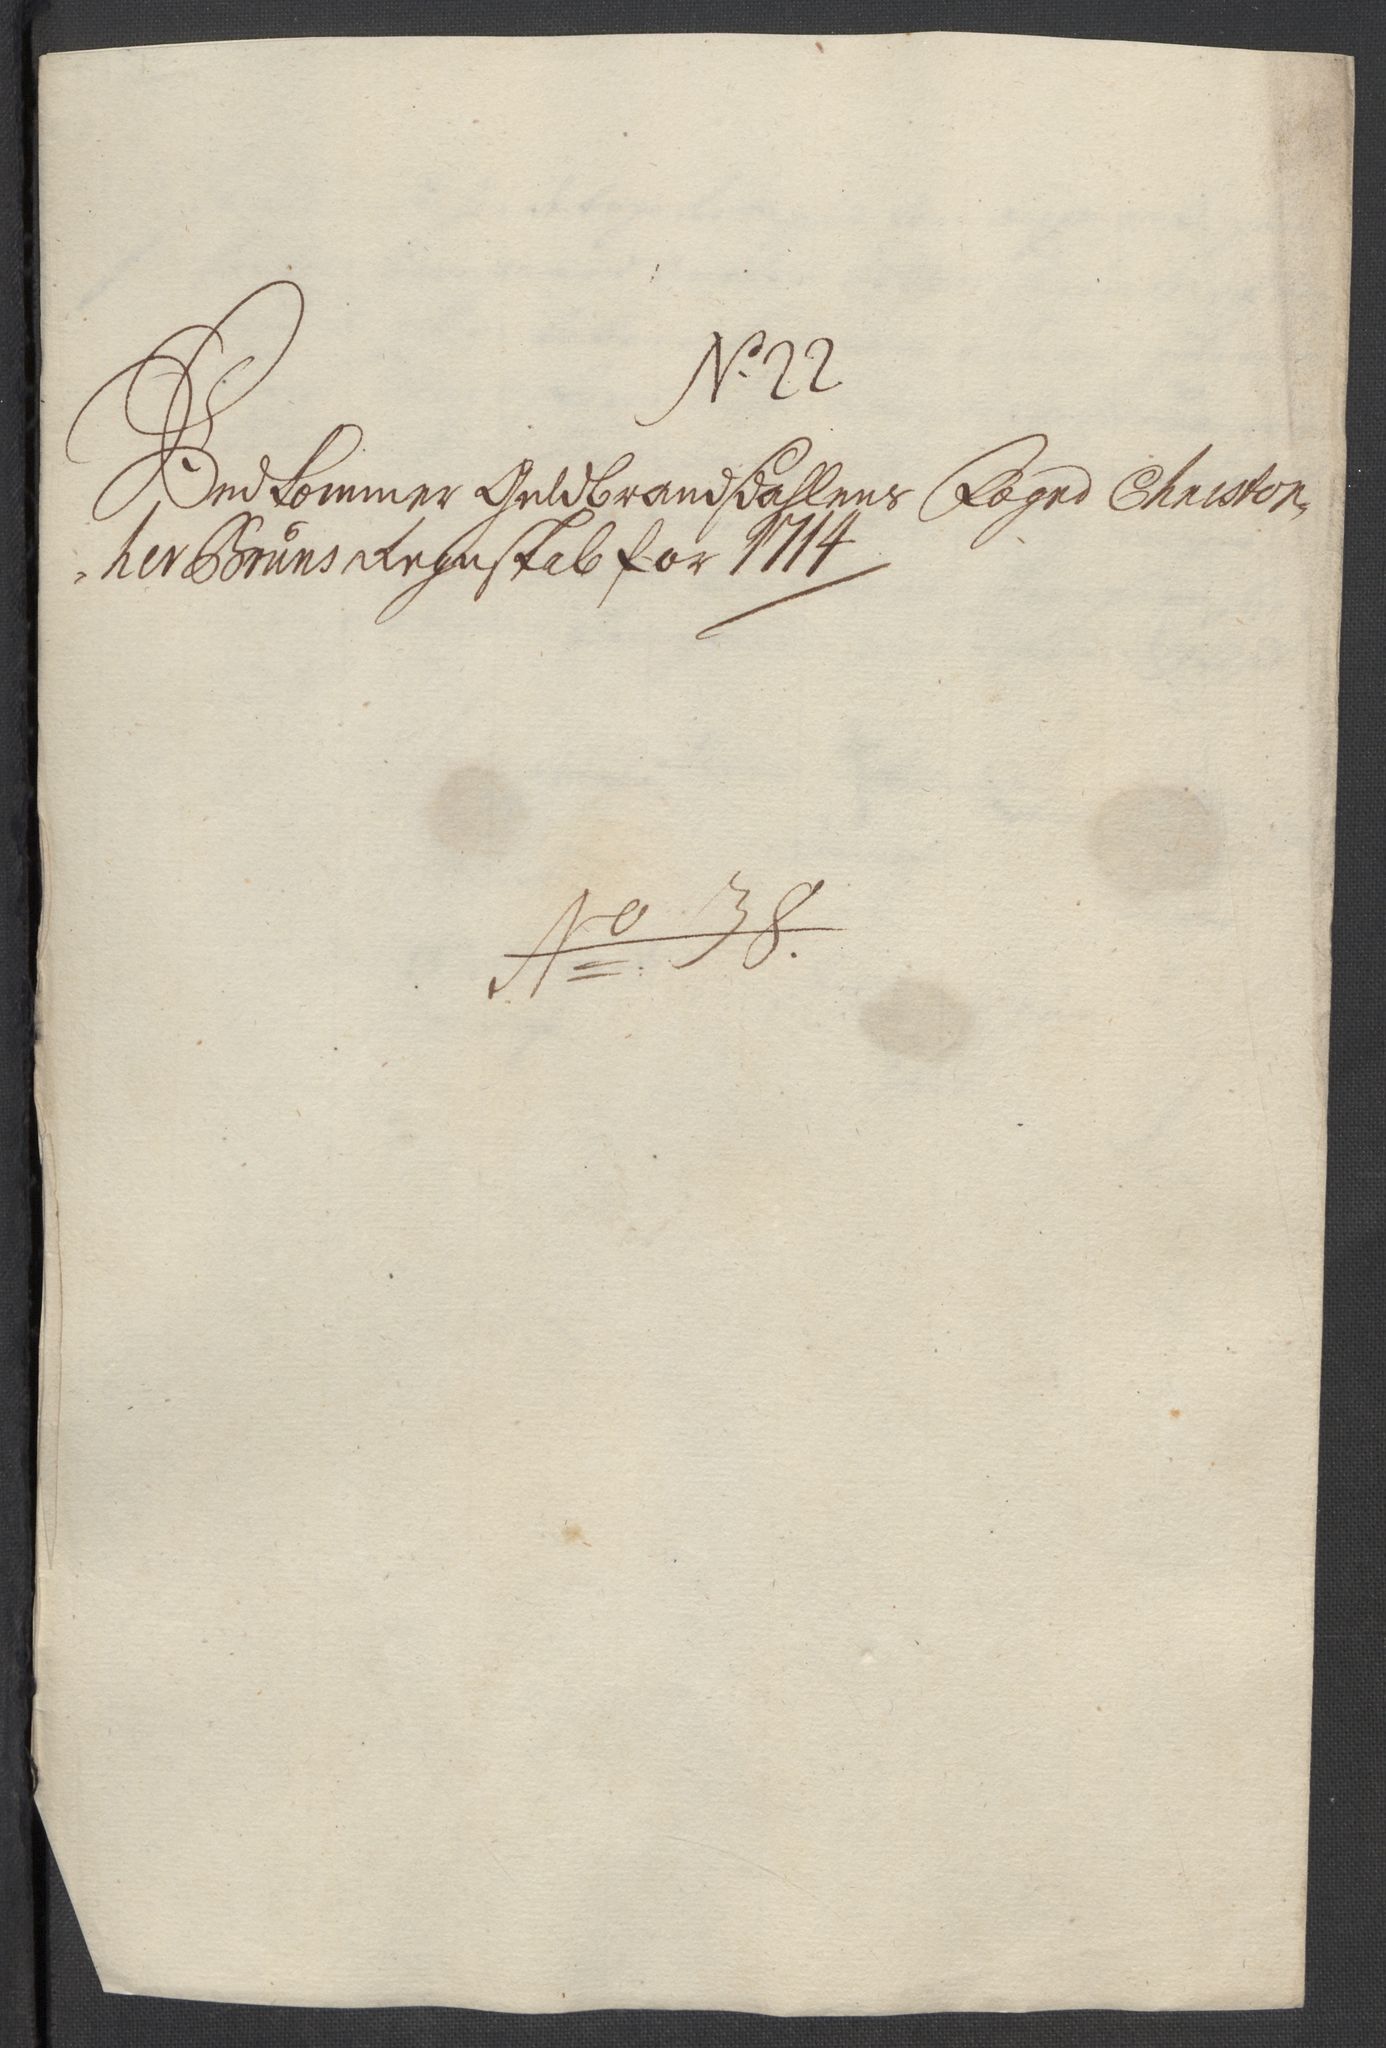 No. 22
Vedkommer Guldbrandsdahlens Foged Christop„
„her Bruuns Regnskab for 1714
No. 38.